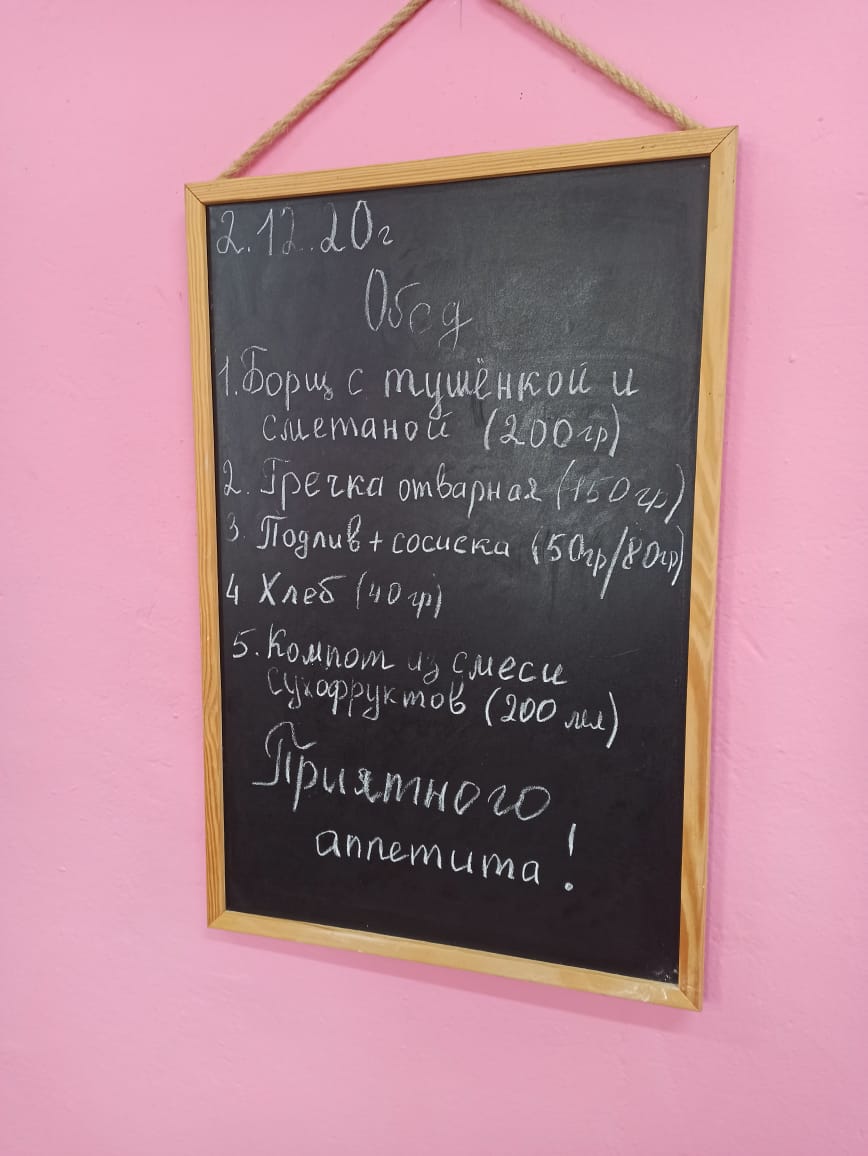 2.12.20г
Обед
1. Борщ с тушёнкой и
сметаной (200гр)
2. Гречка отварная (150гр)
3 Подлив + сосиска (50гр/80гр)
4 Хлеб (40гр)
5. Компот из смеси
сухофруктов (200 мл)
Приятного
аппетита!